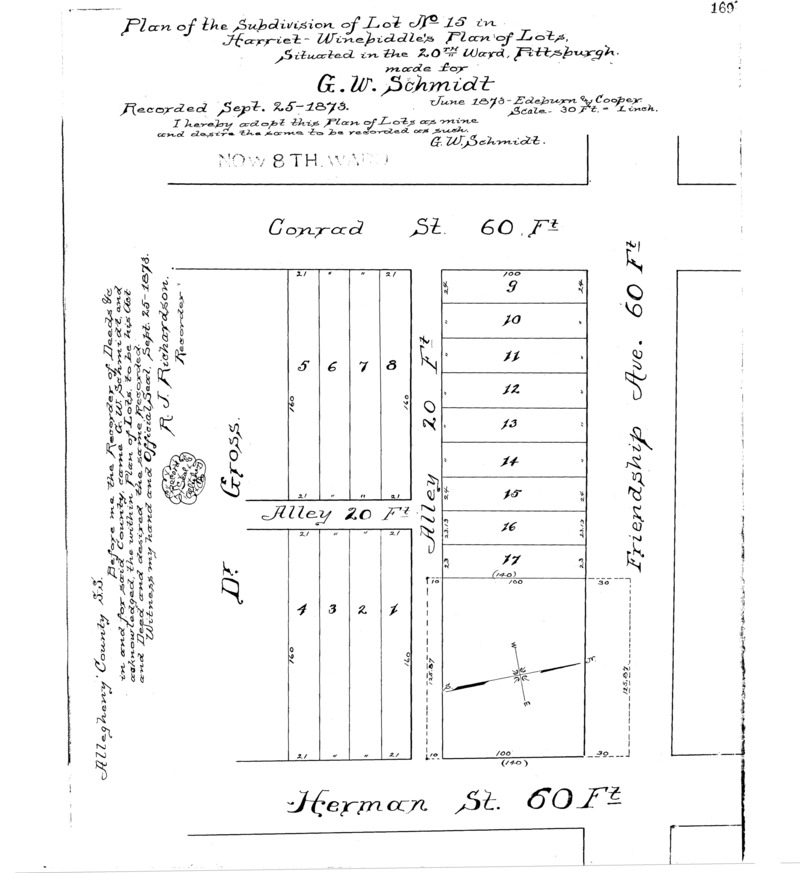 169
Plan of the Subdivision of Lot No. 15 in
Harriet-Winebiddle's Plan of Lots,
Situated in the 20TH Ward, Pittsburgh.
made for
G. W. Schmidt
Recorded Sept. 25-1873.
June 1873-Edeburn & Cooper
Scale- 30 Ft. = 1 inch.
I hereby adopt this Plan of Lots as mine
and desire the same to be recorded as such.
G. W. Schmidt.
NOW 8TH. WARD
Conrad St. 60 Ft
21 " " 21
5 6 7 8
160 160
21 " " 21
Alley 20 Ft
21 " " 21
4 3 2 1
160 160
21 " " 21
Dr. Gross.
Alley 20 Ft
100
24 9 24
" 10 "
" 11 "
" 12 "
" 13 "
" 14 "
24 15 24
23.13 16 23.13
23 17 23
(140)
10 100 30
125.87 125.87
W
S N
E
10 100 30
(140)
Friendship Ave. 60 Ft
Herman St. 60 Ft
Allegheny County S.S.
Before me the Recorder of Deeds &c
in and for said County, came G. W. Schmidt, and
acknowledged, the within Plan of Lots, to be his Act
and Deed and desired the same Recorded.
Witness my hand and Official Seal, Sept. 25-1873.
R. J. Richardson,
Recorder
Seal